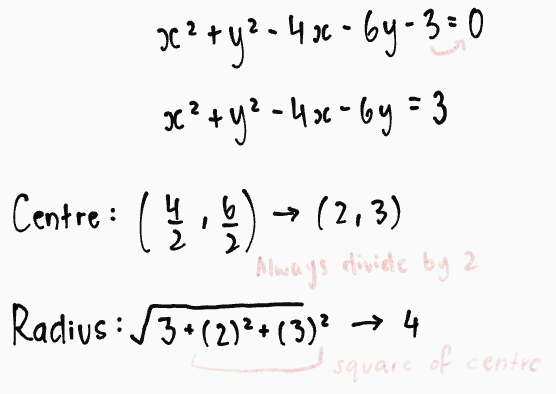 x² + y² - 4x - 6y - 3 = 0
x² + y² - 4x - 6y = 3
Centre: (4/2, 6/2) → (2, 3)
Always divide by 2
Radius: √3 + (2)² + (3)² → 4
square of centre